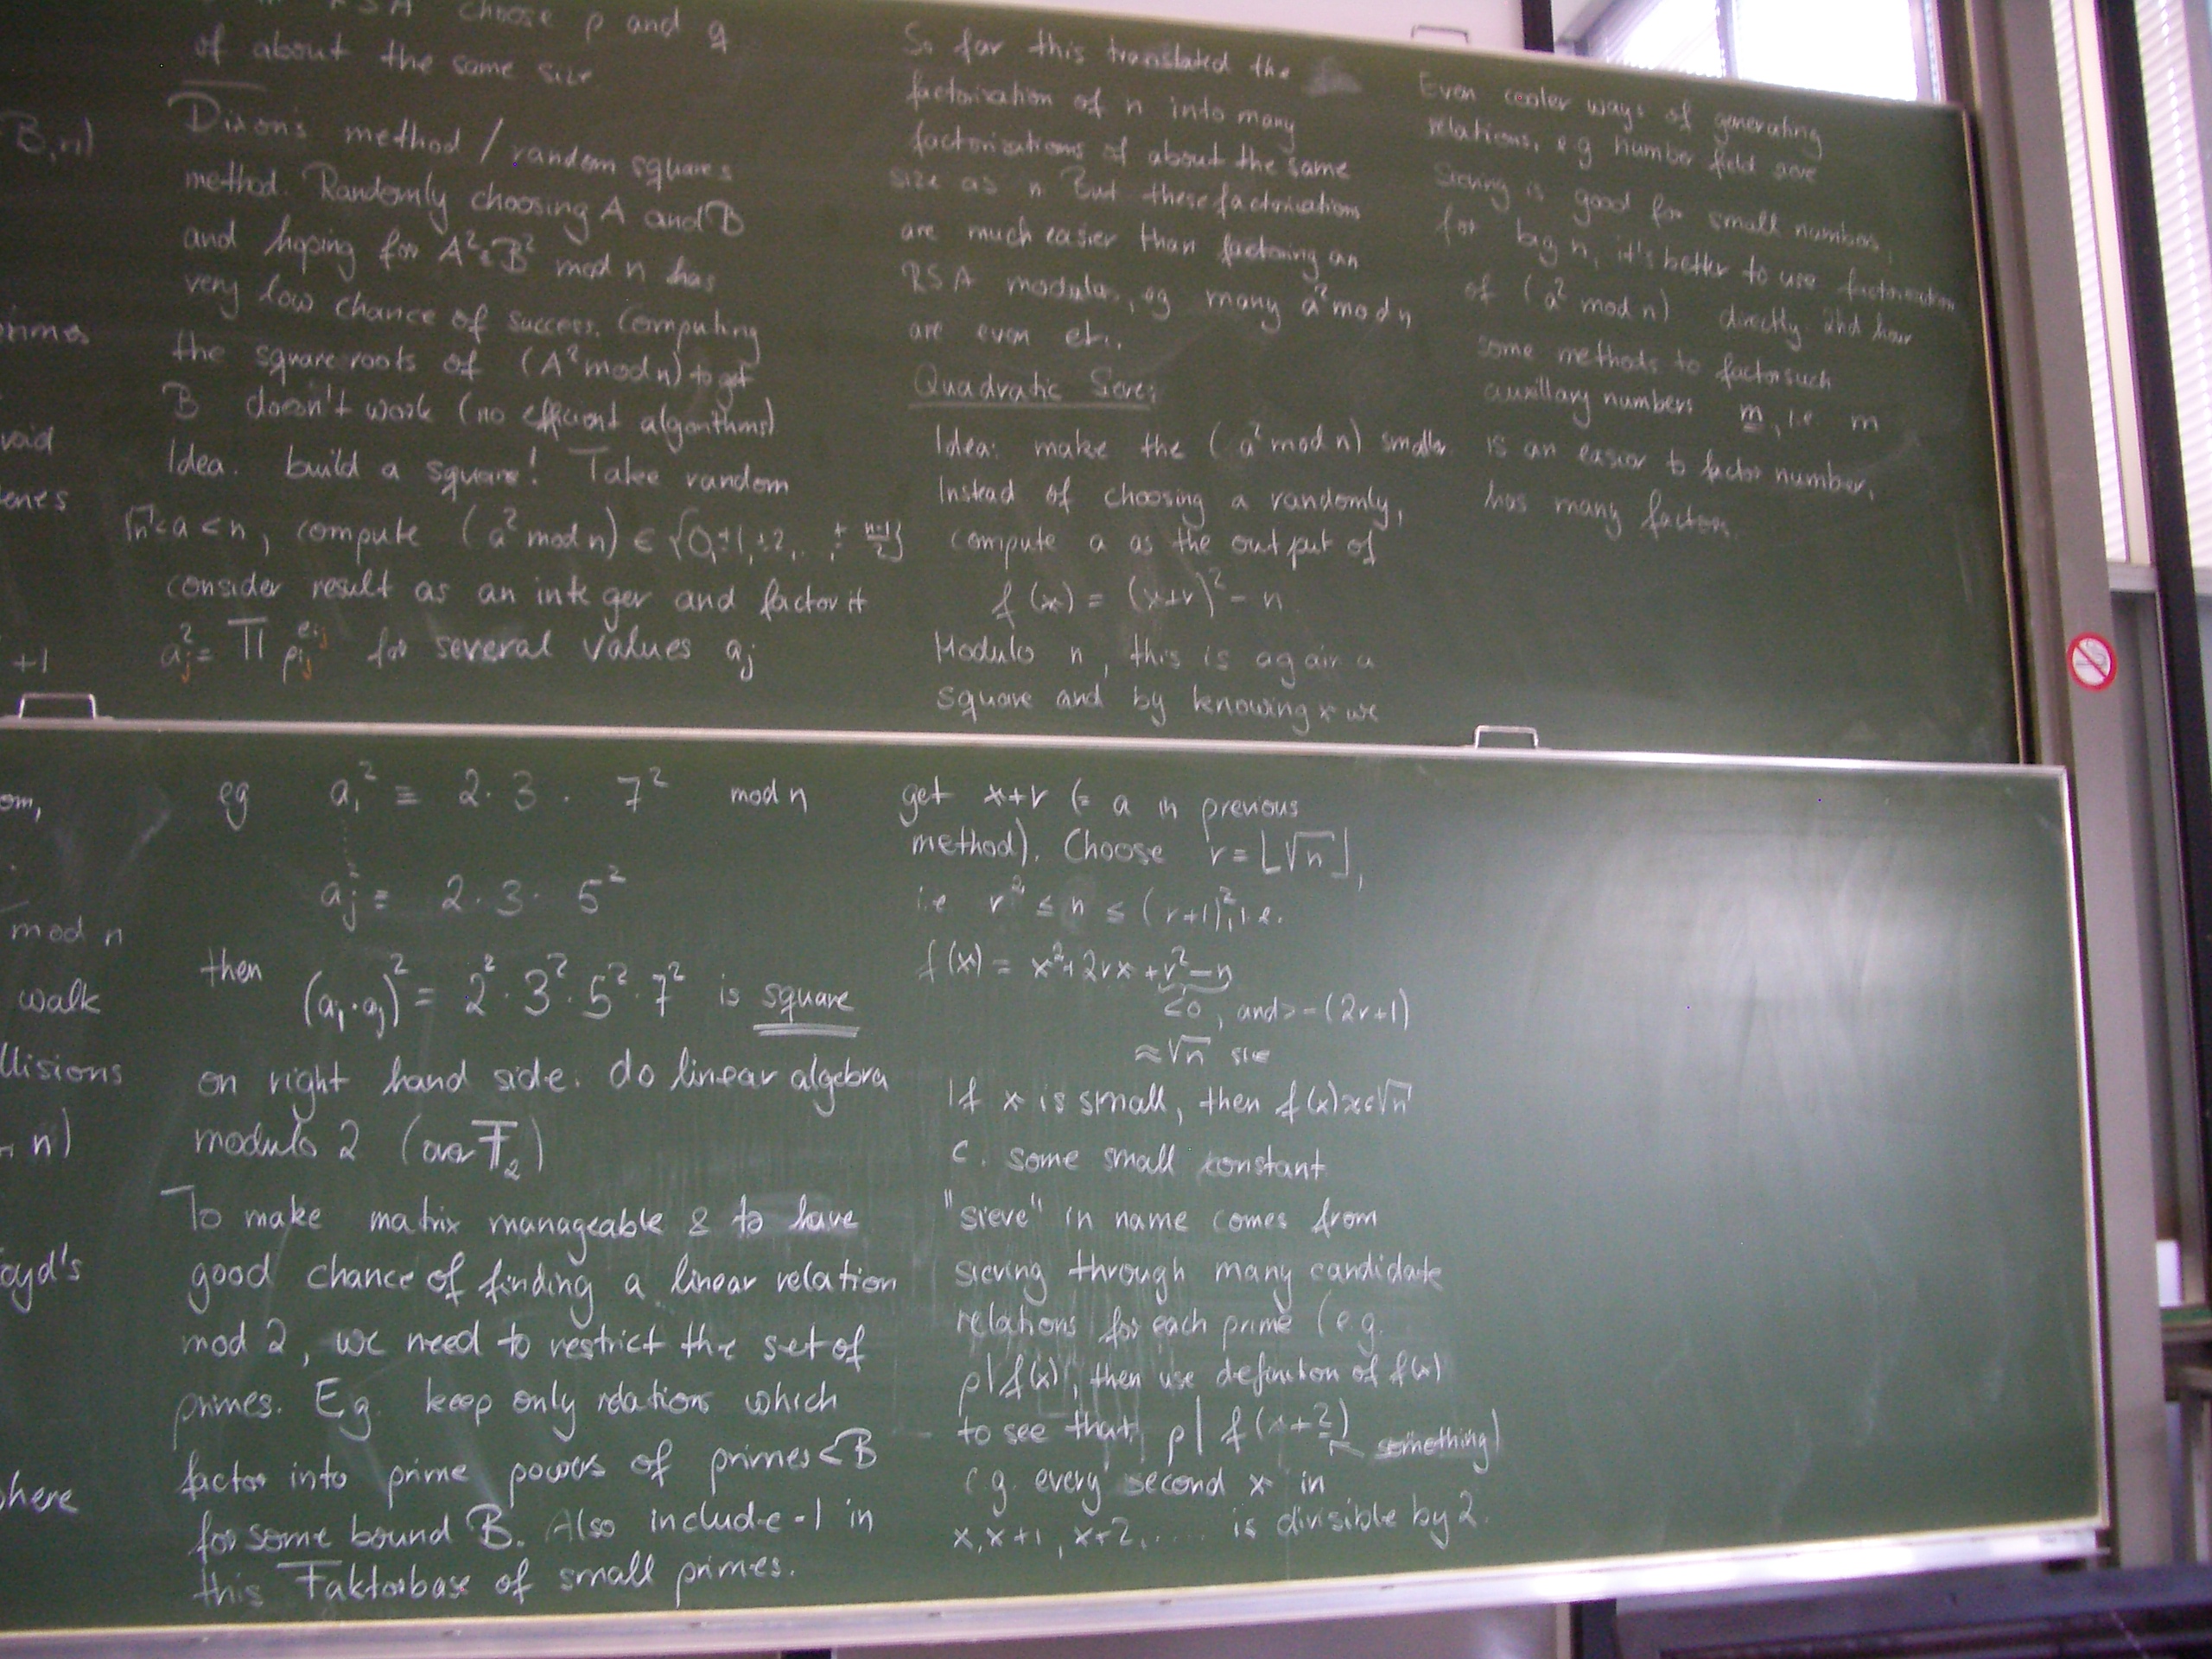 RSA choose p and q
of about the same size
Dixon's method / random squares
method. Randomly choosing A and B
and hoping for A²≡B² mod n has
very low chance of success. Computing
the square roots of (A² mod n) to get
B doesn't work (no efficient algorithms)
Idea. build a square! Take random
√n<a<n, compute (a² mod n) ∈ {0,±1,±2,...,± (n-1)/2}
consider result as an integer and factor it
a_j² = ∏ p_ij^e_ij for several values a_j
eg a_1² ≡ 2·3· 7² mod n
a_j² ≡ 2·3· 5²
then
(a_1·a_j)² = 2²·3²·5²·7² is square
on right hand side. do linear algebra
modulo 2 (over F_2)
To make matrix manageable & to have
good chance of finding a linear relation
mod 2, we need to restrict the set of
primes. Eg. keep only relations which
factor into prime powers of primes<B
for some bound B. Also include -1 in
this Faktorbase of small primes.
So far this translated the
factorisation of n into many
factorizations of about the same
size as n But these factorisations
are much easier than factoring an
RSA modulus, eg many a² mod n
are even etc.
Quadratic Sieve:
Idea: make the (a² mod n) smaller
Instead of choosing a randomly,
compute a as the output of
f(x) = (x+r)² - n
Modulo n, this is again a
square and by knowing x we
get x+r (= a in previous
method). Choose r=⌊√n⌋,
i.e r² ≤ n ≤ (r+1)², i.e.
f(x) = x²+2rx+r²-n
<0, and >-(2r+1)
≈√n size
If x is small, then f(x)≈c√n
c. some small constant
"sieve" in name comes from
sieving through many candidate
relations for each prime (e.g.
p|f(x), then use definition of f(x)
to see that p | f(x+?) something)
e.g. every second x in
x, x+1, x+2,.... is divisible by 2.
Even cooler ways of generating
relations, e.g number field sieve
Sieving is good for small numbers,
for big n, it's better to use factorisation
of (a² mod n) directly. 2nd hour
some methods to factor such
auxillary numbers m, i.e m
is an easier to factor number,
has many factors.
B,n)
void
+1
mod n
walk
n)